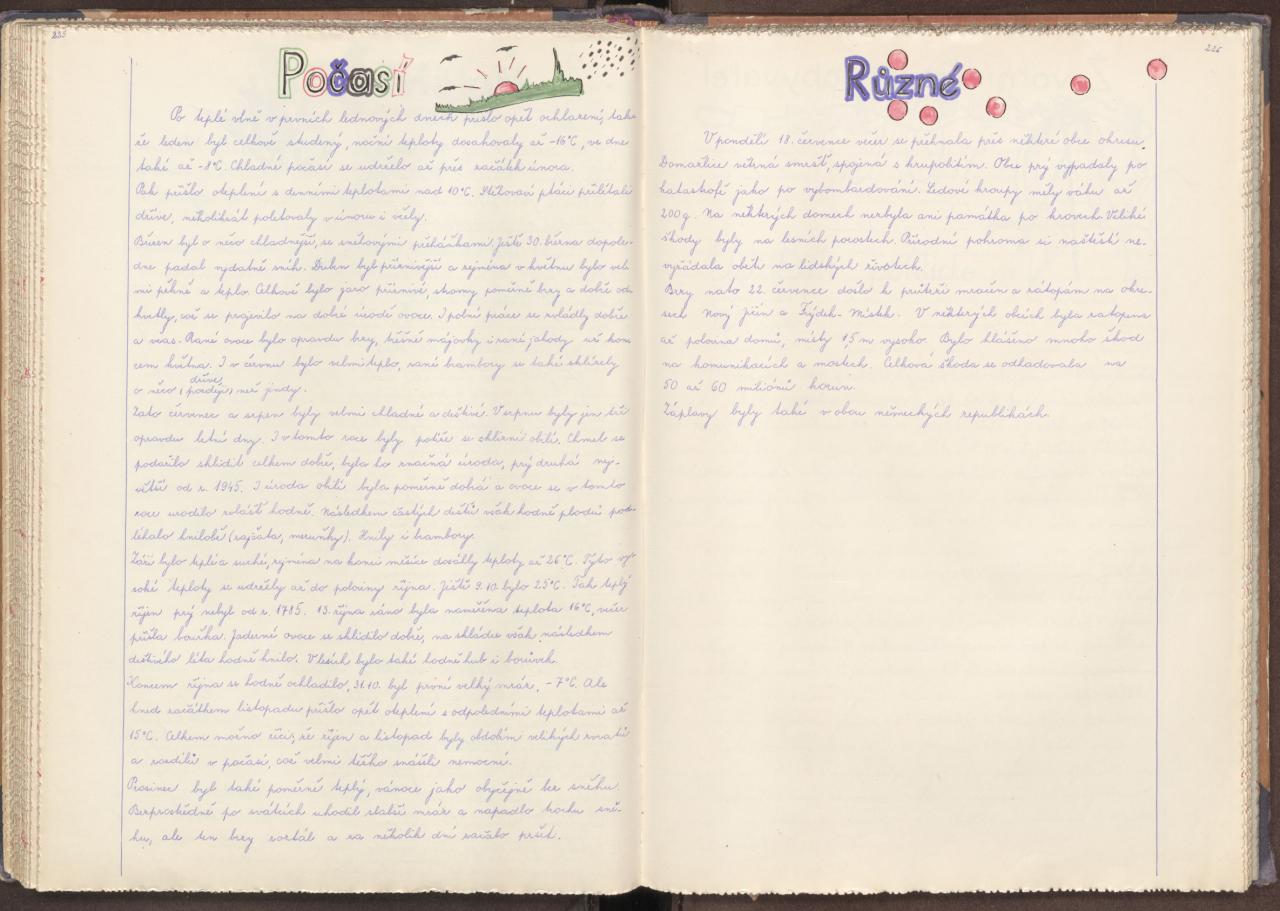 225
Počasí
Po teplé vlně v prvních lednových dnech přišlo opět ochlazení, tak-
že leden byl celkově studený, noční teploty dosahovaly až -16°C, ve dne
také až -8°C. Chladné počasí se udrželo až přes začátek února.
Pak přišlo oteplení s denními teplotami nad 10°C. Stěhovaví ptáci přilétali
dříve, několikrát poletovaly v únoru i včely.
Březen byl o něco chladnější, se sněhovými přeháňkami. Ještě 30. března dopole-
dne padal vydatně sníh. Duben byl příznivější a zejména v květnu bylo vel-
mi pěkně a teplo. Celkově bylo jaro příznivé, stromy poměrně brzy a dobře od-
kvetly, což se projevilo na dobré úrodě ovoce. I polní práce se zvládly dobře
a včas. Rané ovoce bylo opravdu brzy, třešně májovky i rané jahody už kon-
cem května. I v červnu bylo velmi teplo, rané brambory se také sklízely
o něco (později) dříve, než jindy.
Zato červenec a srpen byly velmi chladné a deštivé. V srpnu byly jen tři
opravdu letní dny. I v tomto roce byly potíže se sklizní obilí. Chmel se
podařilo sklidit celkem dobře, byla ho značná úroda, prý druhá nej-
větší od r. 1945. I úroda obilí byla poměrně dobrá a ovoce se v tomto
roce urodilo zvlášť hodně. Následkem častých dešťů však hodně plodů pod-
léhalo hnilobě (rajčata, meruňky). Hnily i brambory.
Září bylo teplé a suché, zejména na konci měsíce dosáhly teploty až 26°C. Tyto vy-
soké teploty se udržely až do poloviny října. Ještě 9.10. bylo 25°C. Tak teplý
říjen prý nebyl od r. 1785. 13. října ráno byla naměřena teplota 16°C, večer
přišla bouřka. Jaderné ovoce se sklidilo dobře, na skládce však následkem
deštivého léta hodně hnilo. V lesích bylo také hodně hub i borůvek.
Koncem října se hodně ochladilo, 31.10. byl první velký mráz, -7°C. Ale
hned začátkem listopadu přišlo opět oteplení s odpoledními teplotami až
15°C. Celkem možno říci, že říjen a listopad byly obdobím velikých zvratů
a rozdílů v počasí, což velmi těžko snášeli nemocní.
Prosinec byl také poměrně teplý, vánoce jako obyčejně bez sněhu.
Bezprostředně po svátcích uhodil slabší mráz a napadlo trochu sně-
hu, ale ten brzy roztál a za několik dní začalo pršet.
226
Různé
V pondělí 18. července večer se přehnala přes některé obce okresu
Domažlice větrná smršť, spojená s krupobitím. Obce prý vypadaly po
katastrofě jako po vybombardování. Ledové kroupy měly váhu až
200 g. Na některých domech nezbyla ani památka po krovech. Veliké
škody byly na lesních porostech. Přírodní pohroma si naštěstí ne-
vyžádala oběti na lidských životech.
Brzy nato 22. července došlo k průtrži mračen a zátopám na okre-
sech Nový Jičín a Frýdek-Místek. V některých obcích byla zatopena
až polovina domů, místy 1,5 m vysoko. Bylo hlášeno mnoho škod
na komunikacích a mostech. Celková škoda se odhadovala na
50 až 60 miliónů korun.
Záplavy byly také v obou německých republikách.